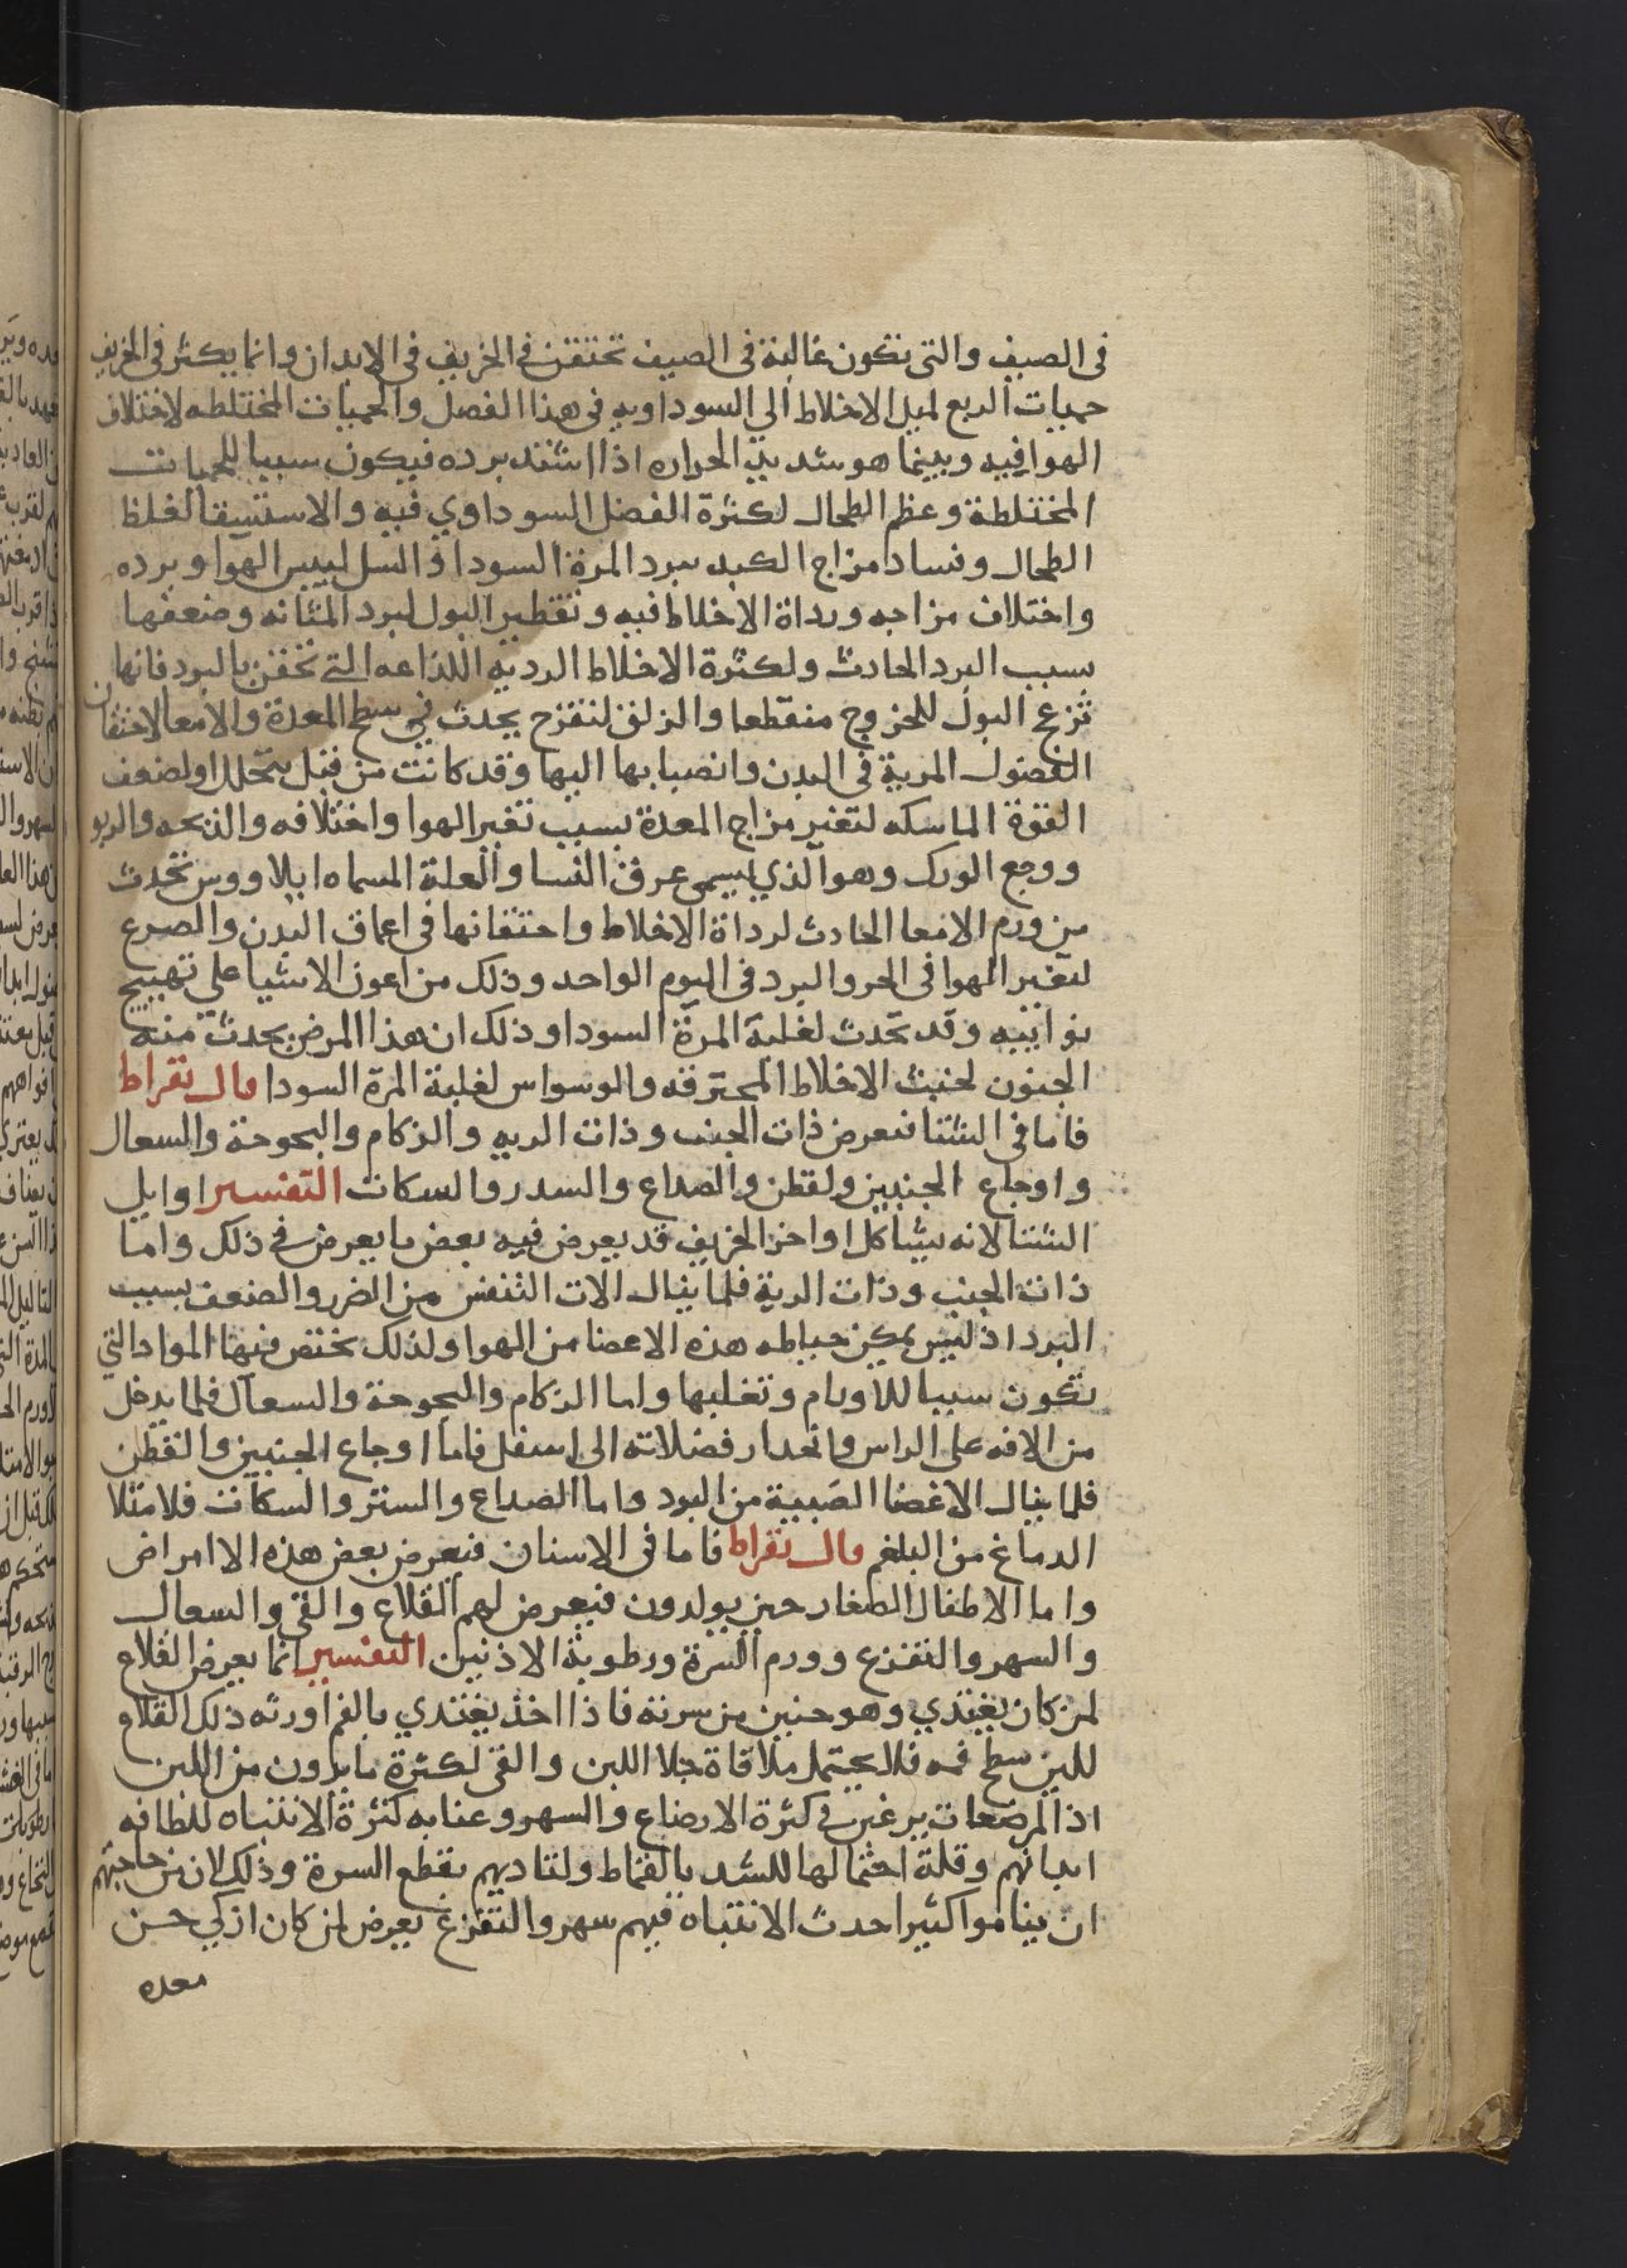 في الصيف والتي تكون غالبة في الصيف تحتقن في الخريف في الابدان وانما يكثر في الخريف
حميات الربع لميل الاخلاط الي السوداويه في هذا الفصل والحميات المختلطه لاختلاف
الهوا فيه وبينما هو شديد الحراره اذا اشتد برده فيكون سببا للحميات
المختلطة وعظم الطحال لكثرة الفضل السوداوي فيه والاستسقا لغلظ
الطحال وفساد مزاج الكبد ببرد المرة السودا والسل ليبس الهوا وبرده
واختلاف مزاجه ورداة الاخلاط فيه وتقطير البول لبرد المثانه وضعفها
بسبب البرد الحادث ولكثرة الاخلاط الرديه اللذاعه التي تحقن بالبرد فانها
تزعج البول للخروج منقطعا والزلق لتقرح يحدث في سطح المعدة والامعا لاحتقان
الفضول المرية في البدن وانصبابها اليها وقد كانت من قبل تتحلل او لضعف
القوة الماسكه لتغير مزاج المعدة بسبب تغير الهوا واختلافه والذبحه والربو
ووجع الورك وهو الذي يسمى عرق النسا والعلة المسماه ايلاووس تحدث
من ورم الامعا الحادث لرداة الاخلاط واحتقانها في اعماق البدن والصرع
لتغير الهوا في الحر والبرد في اليوم الواحد وذلك من اعون الاشيا علي تهييج
نوايبه وقد تحدث لغلبة المرة السودا وذلك ان هذا المرض يحدث منه
الجنون لخبث الاخلاط المحترقه والوسواس لغلبة المرة السودا قال بقراط
فاما في الشتا فيعرض ذات الجنب وذات الريه والزكام والبحوحة والسعال
واوجاع الجنبين ولقطن والصداع والسدر والسكات التفسير اوايل
الشتا لانه يشاكل اواخر الخريف قد يعرض فيه بعض ما يعرض في ذلك واما
ذات الجنب وذات الرية فلما ينال الات التنفس من الضرر والضعف بسبب
البرد اذ ليس يمكن حياطه هذه الاعضا من الهوا ولذلك تختص فيها المواد التي
تكون سببا للاورام وتغلبها واما الزكام والبحوحة والسعال فلما يدخل
من الافه على الراس وانحدار فضلاته الى اسفل فاما اوجاع الجنبين والقطن
فلما ينال الاعضا العصبية من البرد واما الصداع والستر والسكات فلامتلا
الدماغ من البلغم قال بقراط فاما في الاسنان فيعرض بعض هذه الاامراض
واما الاطفال الصغار حين يولدون فيعرض لهم القلاع والقي والسعال
والسهر والتفزع وورم السرة ورطوبة الاذنين التفسير انما يعرض القلاع
لمن كان يغتذي وهو جنين من سرته فاذا اخذ يغتذي بالفم اورثه ذلك القلاع
للين سطح فمه فلا يحتمل ملاقاة جلا اللبن والقي لكثرة ما يردون من اللبن
اذ المرضعات يرغبن في كثرة الارضاع والسهر وعنا به كثرة الانتباه للطافه
ابدانهم وقلة احتمالها للشد بالقماط ولتاديهم بقطع السرة وذلك لان من حاجتهم
ان يناموا كثيرا حدث الانتباه فيهم سهر والتفزع يعرض لمن كان ازكي حسن
معده